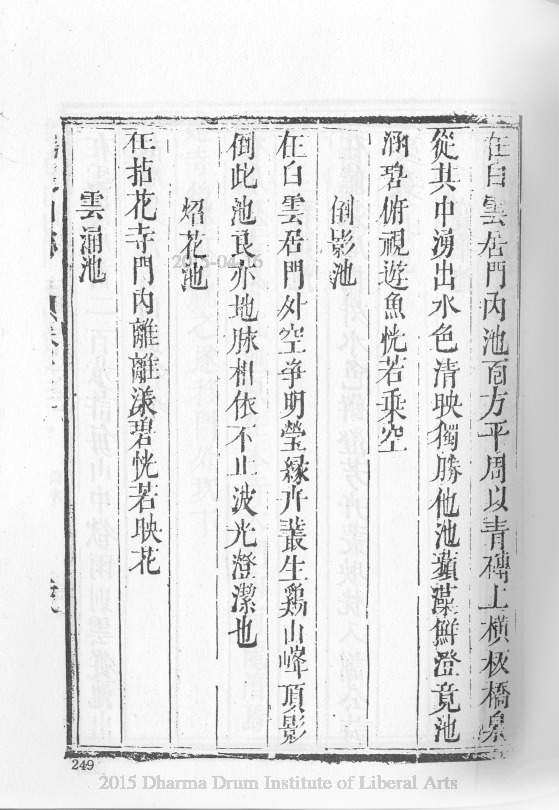 在白雲居門內池面方平周以青磚上橫板橋泉
從其中湧出水色清映獨勝他池蘋藻鮮澄竟池
涵碧俯視遊魚恍若乘空
倒影池
在白雲居門外空爭明瑩綠卉叢生鷄山峰頂影
倒此池良亦地脉相依不止波光澄潔也
炤花池
在拈花寺門內離離漾碧恍若映花
雲涌池
249
2015-04-16
2015 Dharma Drum Institute of Liberal Arts